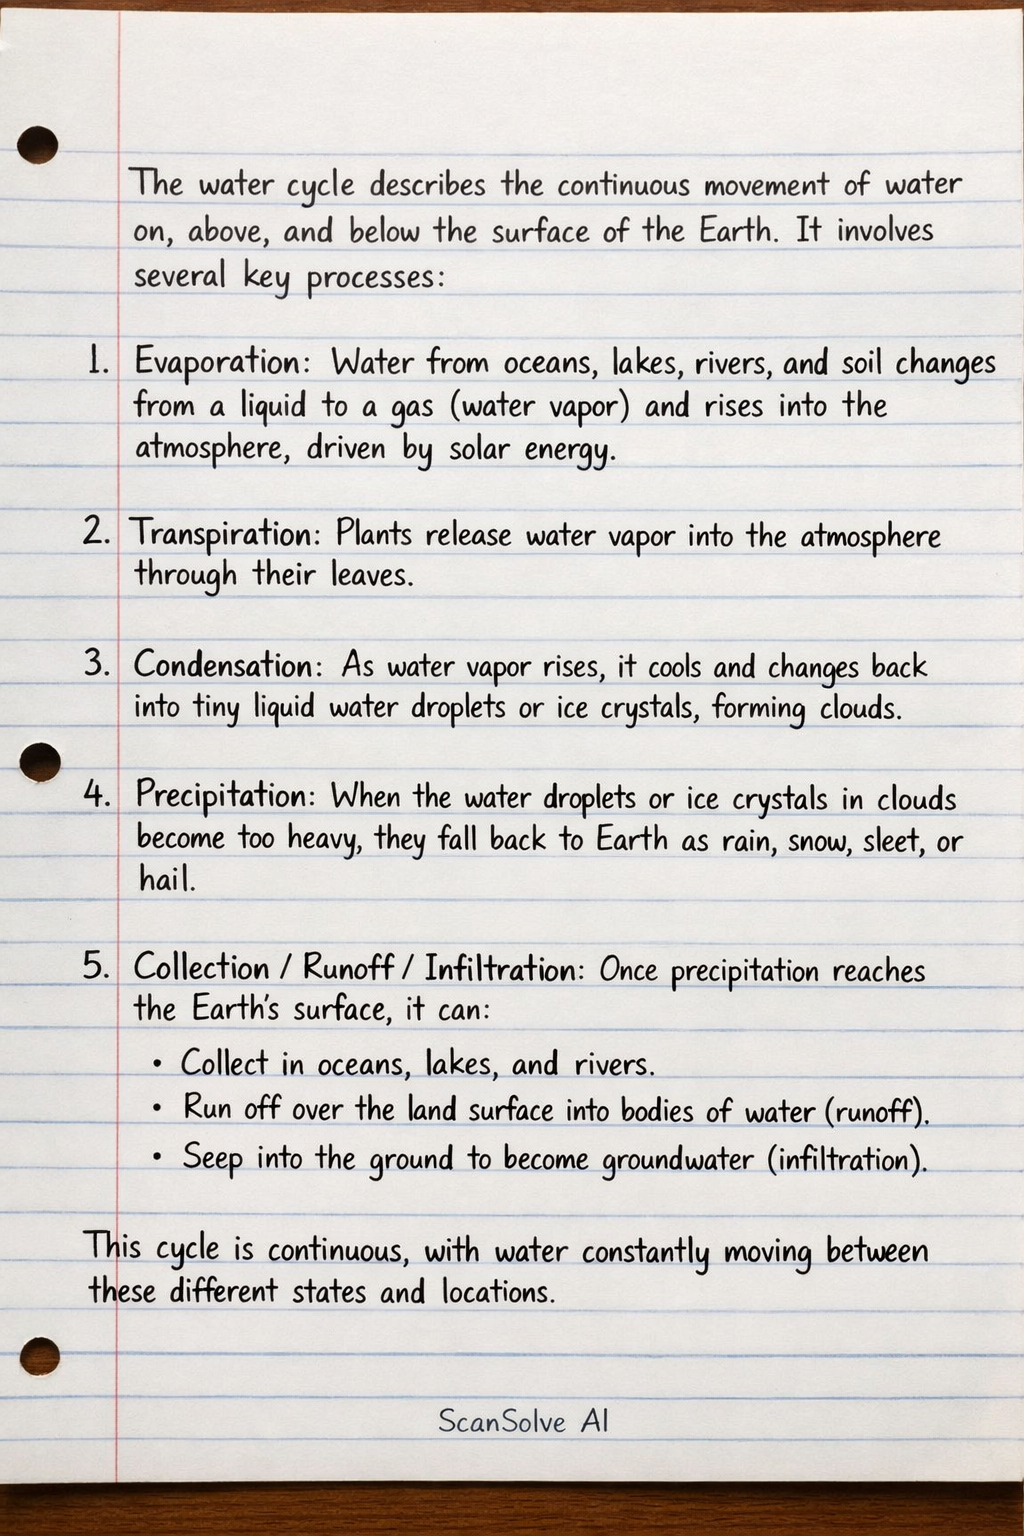 The water cycle describes the continuous movement of water
on, above, and below the surface of the Earth. It involves
several key processes:
1. Evaporation: Water from oceans, lakes, rivers, and soil changes
from a liquid to a gas (water vapor) and rises into the
atmosphere, driven by solar energy.
2. Transpiration: Plants release water vapor into the atmosphere
through their leaves.
3. Condensation: As water vapor rises, it cools and changes back
into tiny liquid water droplets or ice crystals, forming clouds.
4. Precipitation: When the water droplets or ice crystals in clouds
become too heavy, they fall back to Earth as rain, snow, sleet, or
hail.
5. Collection / Runoff / Infiltration: Once precipitation reaches
the Earth's surface, it can:
• Collect in oceans, lakes, and rivers.
• Run off over the land surface into bodies of water (runoff).
• Seep into the ground to become groundwater (infiltration).
This cycle is continuous, with water constantly moving between
these different states and locations.
ScanSolve AI